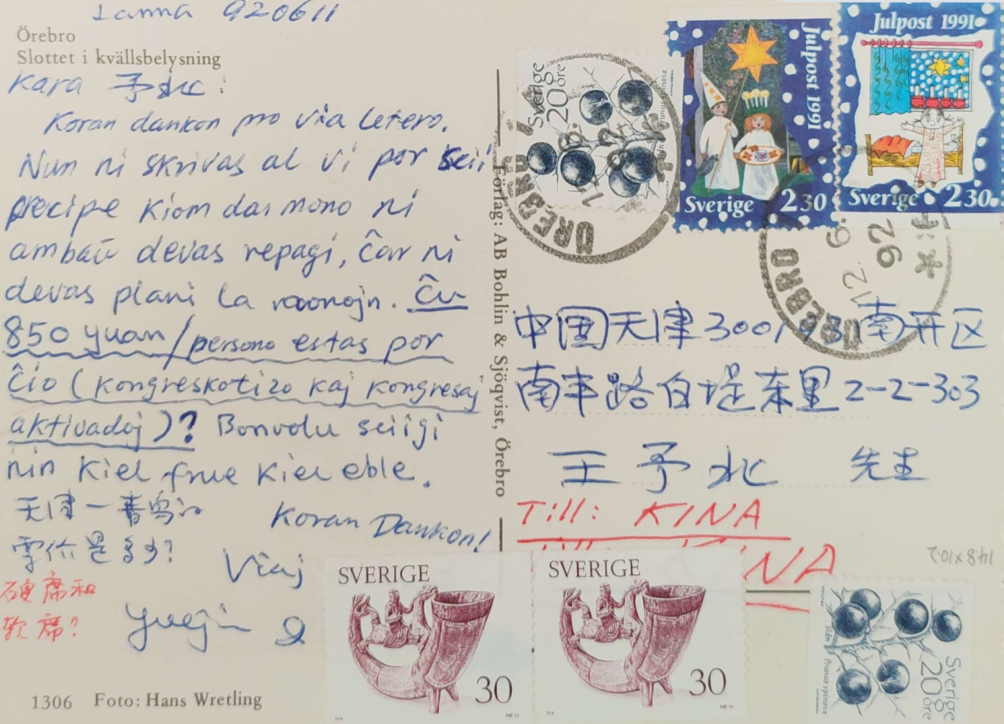 Lanna 920611
Örebro
Slottet i kvällsbelysning
Kara 予北:
Koran dankon pro via letero.
Nun ni skrivas al vi por scii
precipe kiom da mono ni
ambaŭ devas repagi, ĉar ni
devas plani la monojn. Ĉu
850 yuan/persono estas por
ĉio (kongreskotizo kaj kongresaj
aktivadoj)? Bonvolu sciigi
nin kiel frue kiel eble.
Koran Dankon!
天津—青岛
票价是多少?
硬席和
软席?
Viaj
Yuejin
1306 Foto: Hans Wretling
Förlag: AB Bohlin & Sjöqvist, Örebro
Sverige
20 öre
Prunus spinosa
Julpost 1991
Sverige 2 30
Julpost 1991
Sverige 2 30
ÖREBRO
12. 6. 92
ÖREBRO
12. 6. 92
中国天津 南开区
南丰路白堤东里2-2-303
王予北 先生
Till: KINA
KINA
148X10.2
SVERIGE
30
SVERIGE
30
Sverige
20 öre
Prunus spinosa